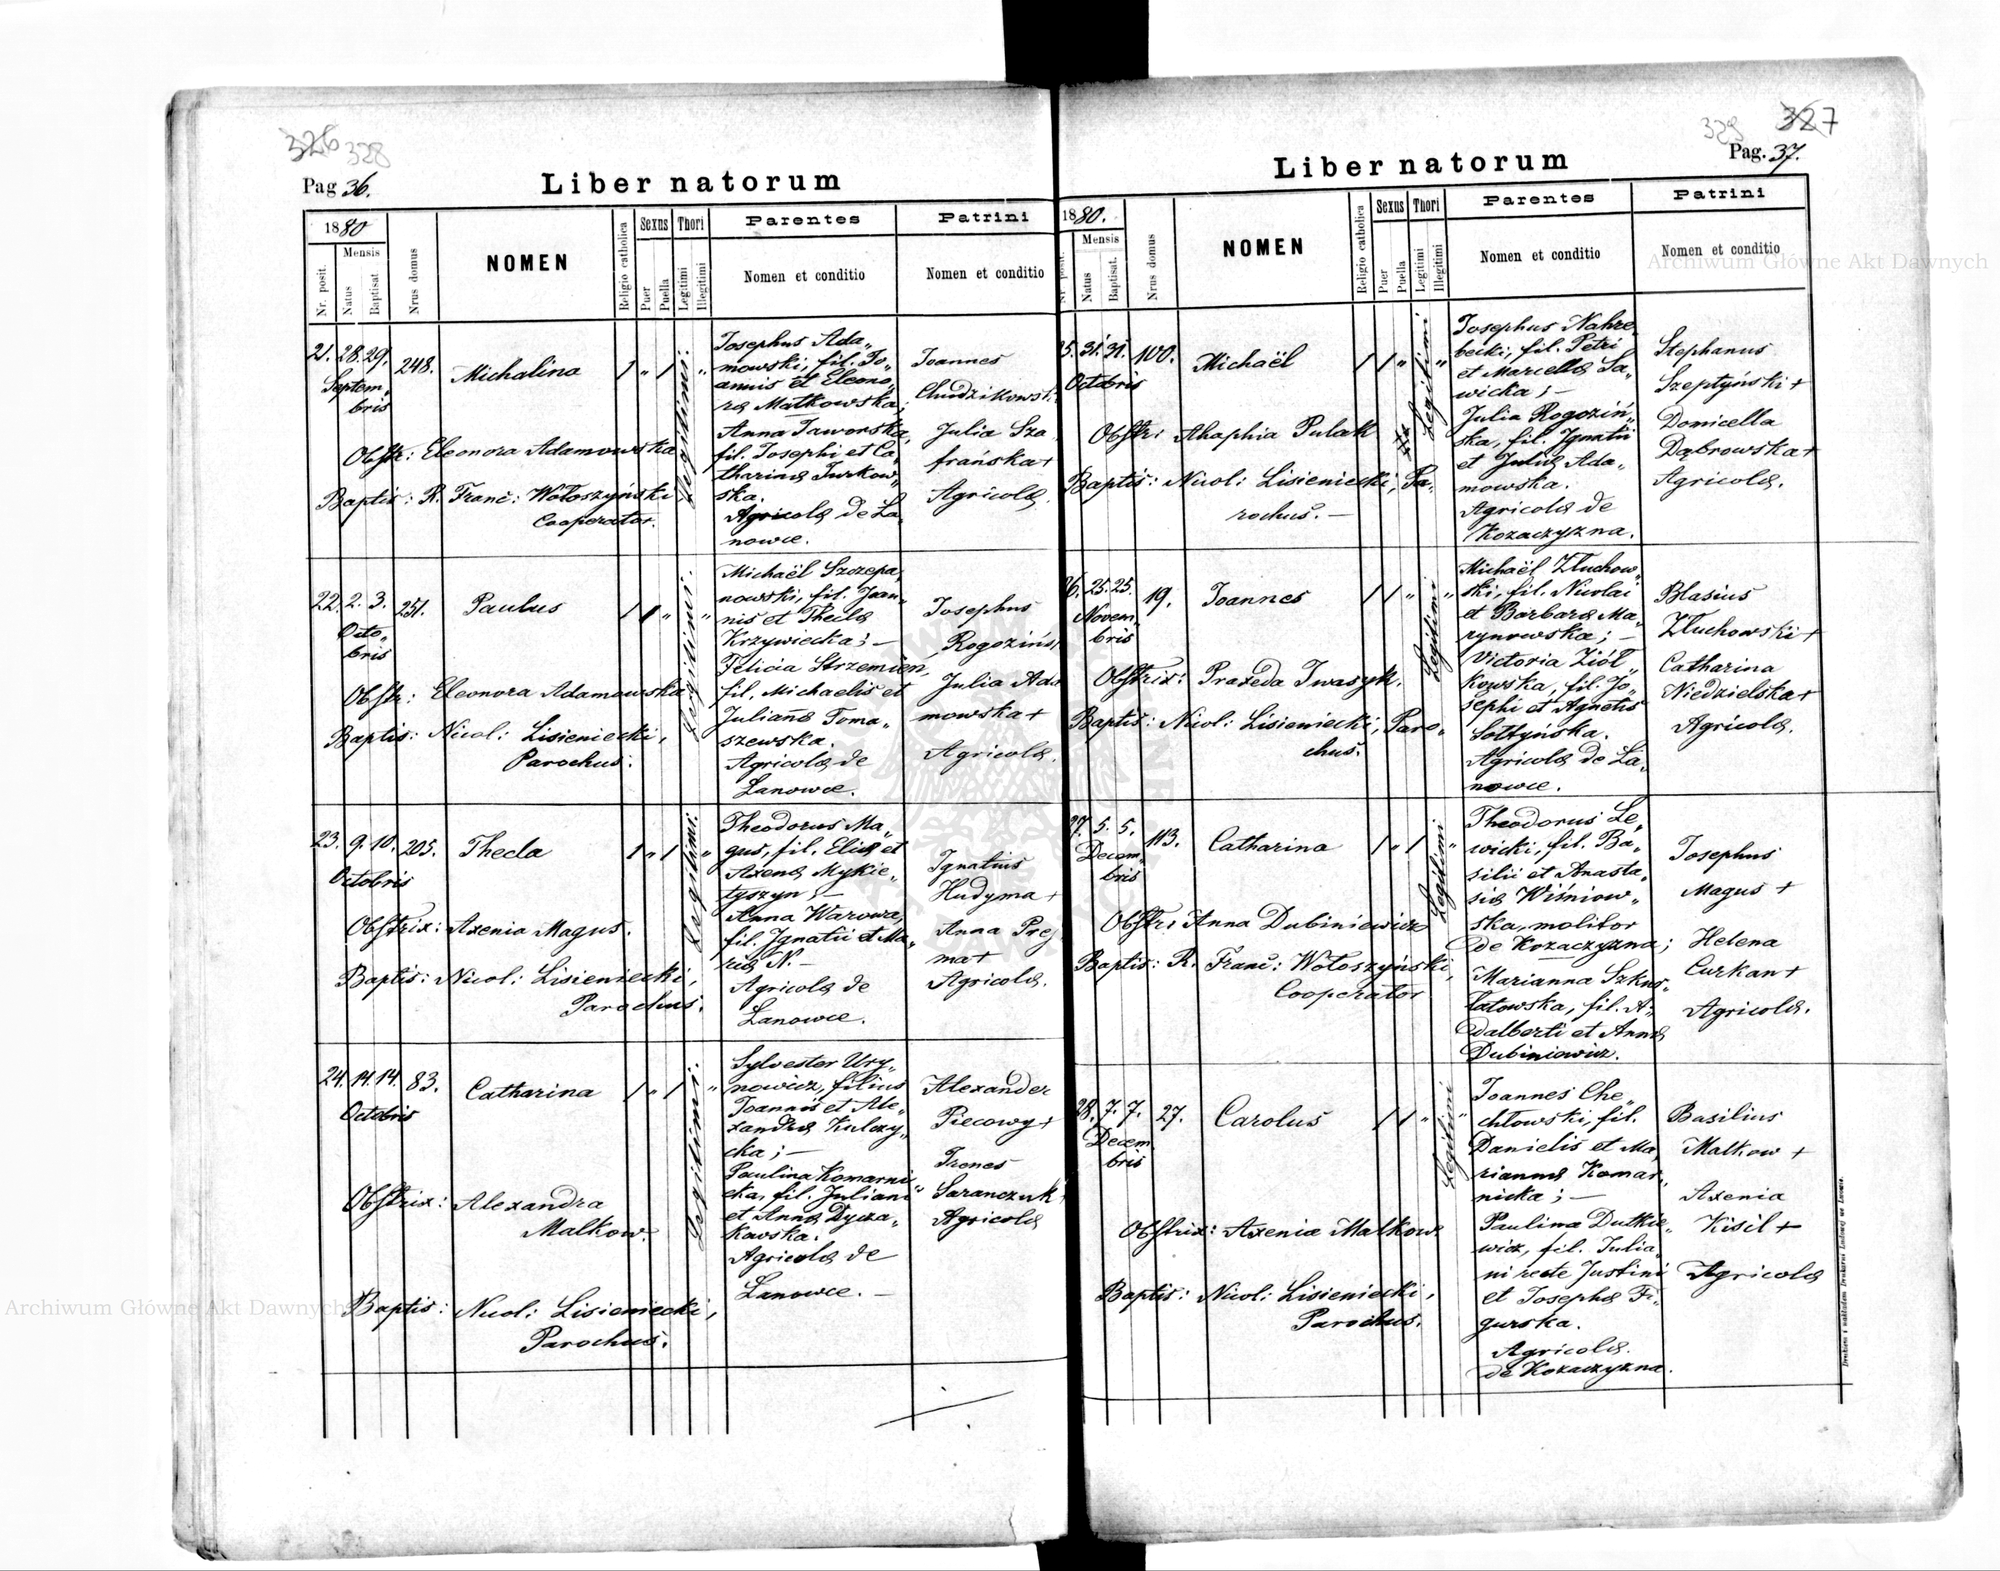 326 328
Pag 36.
Liber natorum
1880
Mensis
Nr. posit.
Natus
Baptisat
Nrus domus
NOMEN
Religio catholica
Sexus
Puer
Puella
Thori
Legitimi
Illegitimi
Parentes
Nomen et conditio
Patrini
Nomen et conditio
21. 28. 29. 248. Michalina 1 " 1 Legitimi: "
Septem„
bris
Obstr: Eleonora Adamowska
Baptis: R. Franc: Wołoszyński
Cooperator.
Josephus Ada„
mowski, fil. Jo„
annis et Eleono„
ra Matkowska;
Anna Jaworska,
fil. Josephi et Ca„
tharina Turkow„
ska.
Agricola de Ła„
nowce.
Joannes
Chudzikowski
Julia Sza„
frańska +
Agricola.
22. 2. 3. 251. Paulus 1 1 " Legitimi: "
Octo„
bris
Obstr: Eleonora Adamowska
Baptis: Nicol: Lisieniecki,
Parochus.
Michaël Szczepa„
nowski, fil. Joan„
nis et Thecla
Krzywiecka; –
Felicia Strzemień,
fil. Michaelis et
Juliana Toma„
szewska.
Agricola de
Łanowce.
Josephus
Rogozińs
Julia Ada
mowska +
Agricola.
23. 9. 10. 205. Thecla 1 " 1 Legitimi: "
Octobris
Obstrix: Axenia Magus.
Baptis: Nicol: Lisieniecki,
Parochus.
Theodorus Ma„
gus, fil. Elia et
Axena Mykie„
tyszyn; –
Anna Warowa,
fil. Ignatii et Ma„
ria N. –
Agricola de
Łanowce.
Ignatius
Hudyma +
Anna Prej
ma +
Agricola.
24. 14. 14. 83. Catharina 1 " 1 Legitimi: "
Octobris
Obstrix: Alexandra
Malkow.
Baptis: Nicol: Lisieniecki,
Parochus.
Sylvester Ury„
nowicz, filius
Joannis et Ale„
xandra Kulczy„
cka; –
Paulina Komarni„
cka, fil. Juliani
et Anna Dycza„
kowska.
Agricola de
Łanowce. –
Alexander
Piecowy +
Irenes
Saranczuk +
Agricola
329 327
Pag. 37.
Liber natorum
1880.
Mensis
Nr. posit.
Natus
Baptisat.
Nrus domus
NOMEN
Religio catholica
Sexus
Puer
Puella
Thori
Legitimi
Illegitimi
Parentes
Nomen et conditio
Patrini
Nomen et conditio
25. 31. 31. 100. Michaël 1 1 " Legitimi "
Octobris
Obstr: Ahaphia Pulak
Baptis: Nicol: Lisieniecki, Pa„
rochus. –
Josephus Nahre
becki, fil. Petri
et Marcella Sa„
wicka; –
Julia Rogoziń„
ska, fil. Ignatii
et Julia Ada„
mowska.
Agricola de
Kozaczyzna.
Stephanus
Szeptyński +
Donicella
Dąbrowska +
Agricola.
26. 25. 25. 19. Joannes 1 1 " Legitimi "
Novem„
bris
Obstrix: Praxeda Iwasyk.
Baptis: Nicol: Lisieniecki, Paro„
chus.
Michaël Złuchow„
ski, fil. Nicolai
et Barbara Ma„
rynowska; –
Victoria Ziół„
kowska, fil. Jo„
sephi et Agnetis
Sołtyńska.
Agricola de Ła„
nowce.
Blasius
Złuchowski +
Catharina
Niedzielska +
Agricola.
27. 5. 5. 113. Catharina 1 " 1 Legitimi "
Decem„
bris
Obstr: Anna Dubiniewicz
Baptis: R. Franc: Wołoszyński,
Cooperator
Theodorus Le„
wicki, fil. Ba„
silii et Anasta„
sia Wiśniow„
ska, molitor
de Kozaczyzna;
Marianna Szkos„
łatowska, fil. A„
dalberti et Anna
Dubiniewicz.
Josephus
Magus +
Helena
Curkan +
Agricola.
28. 7. 7. 27. Carolus 1 1 " Legitimi "
Decem
bris
Obstrix: Axenia Malkow
Baptis: Nicol: Lisieniecki,
Parochus.
Joannes Che„
chłowski, fil.
Danielis et Ma„
rianna Komar„
nicka; –
Paulina Dutkie„
wicz, fil. Julia„
ni recte Justini
et Josepha Fi„
gurska.
Agricola
de Kozaczyzna.
Basilius
Malkow +
Axenia
Kisil +
Agricola
Drukiem i nakładem Drukarni Ludowej we Lwowie.
Archiwum Główne Akt Dawnych
Archiwum Główne Akt Dawnych